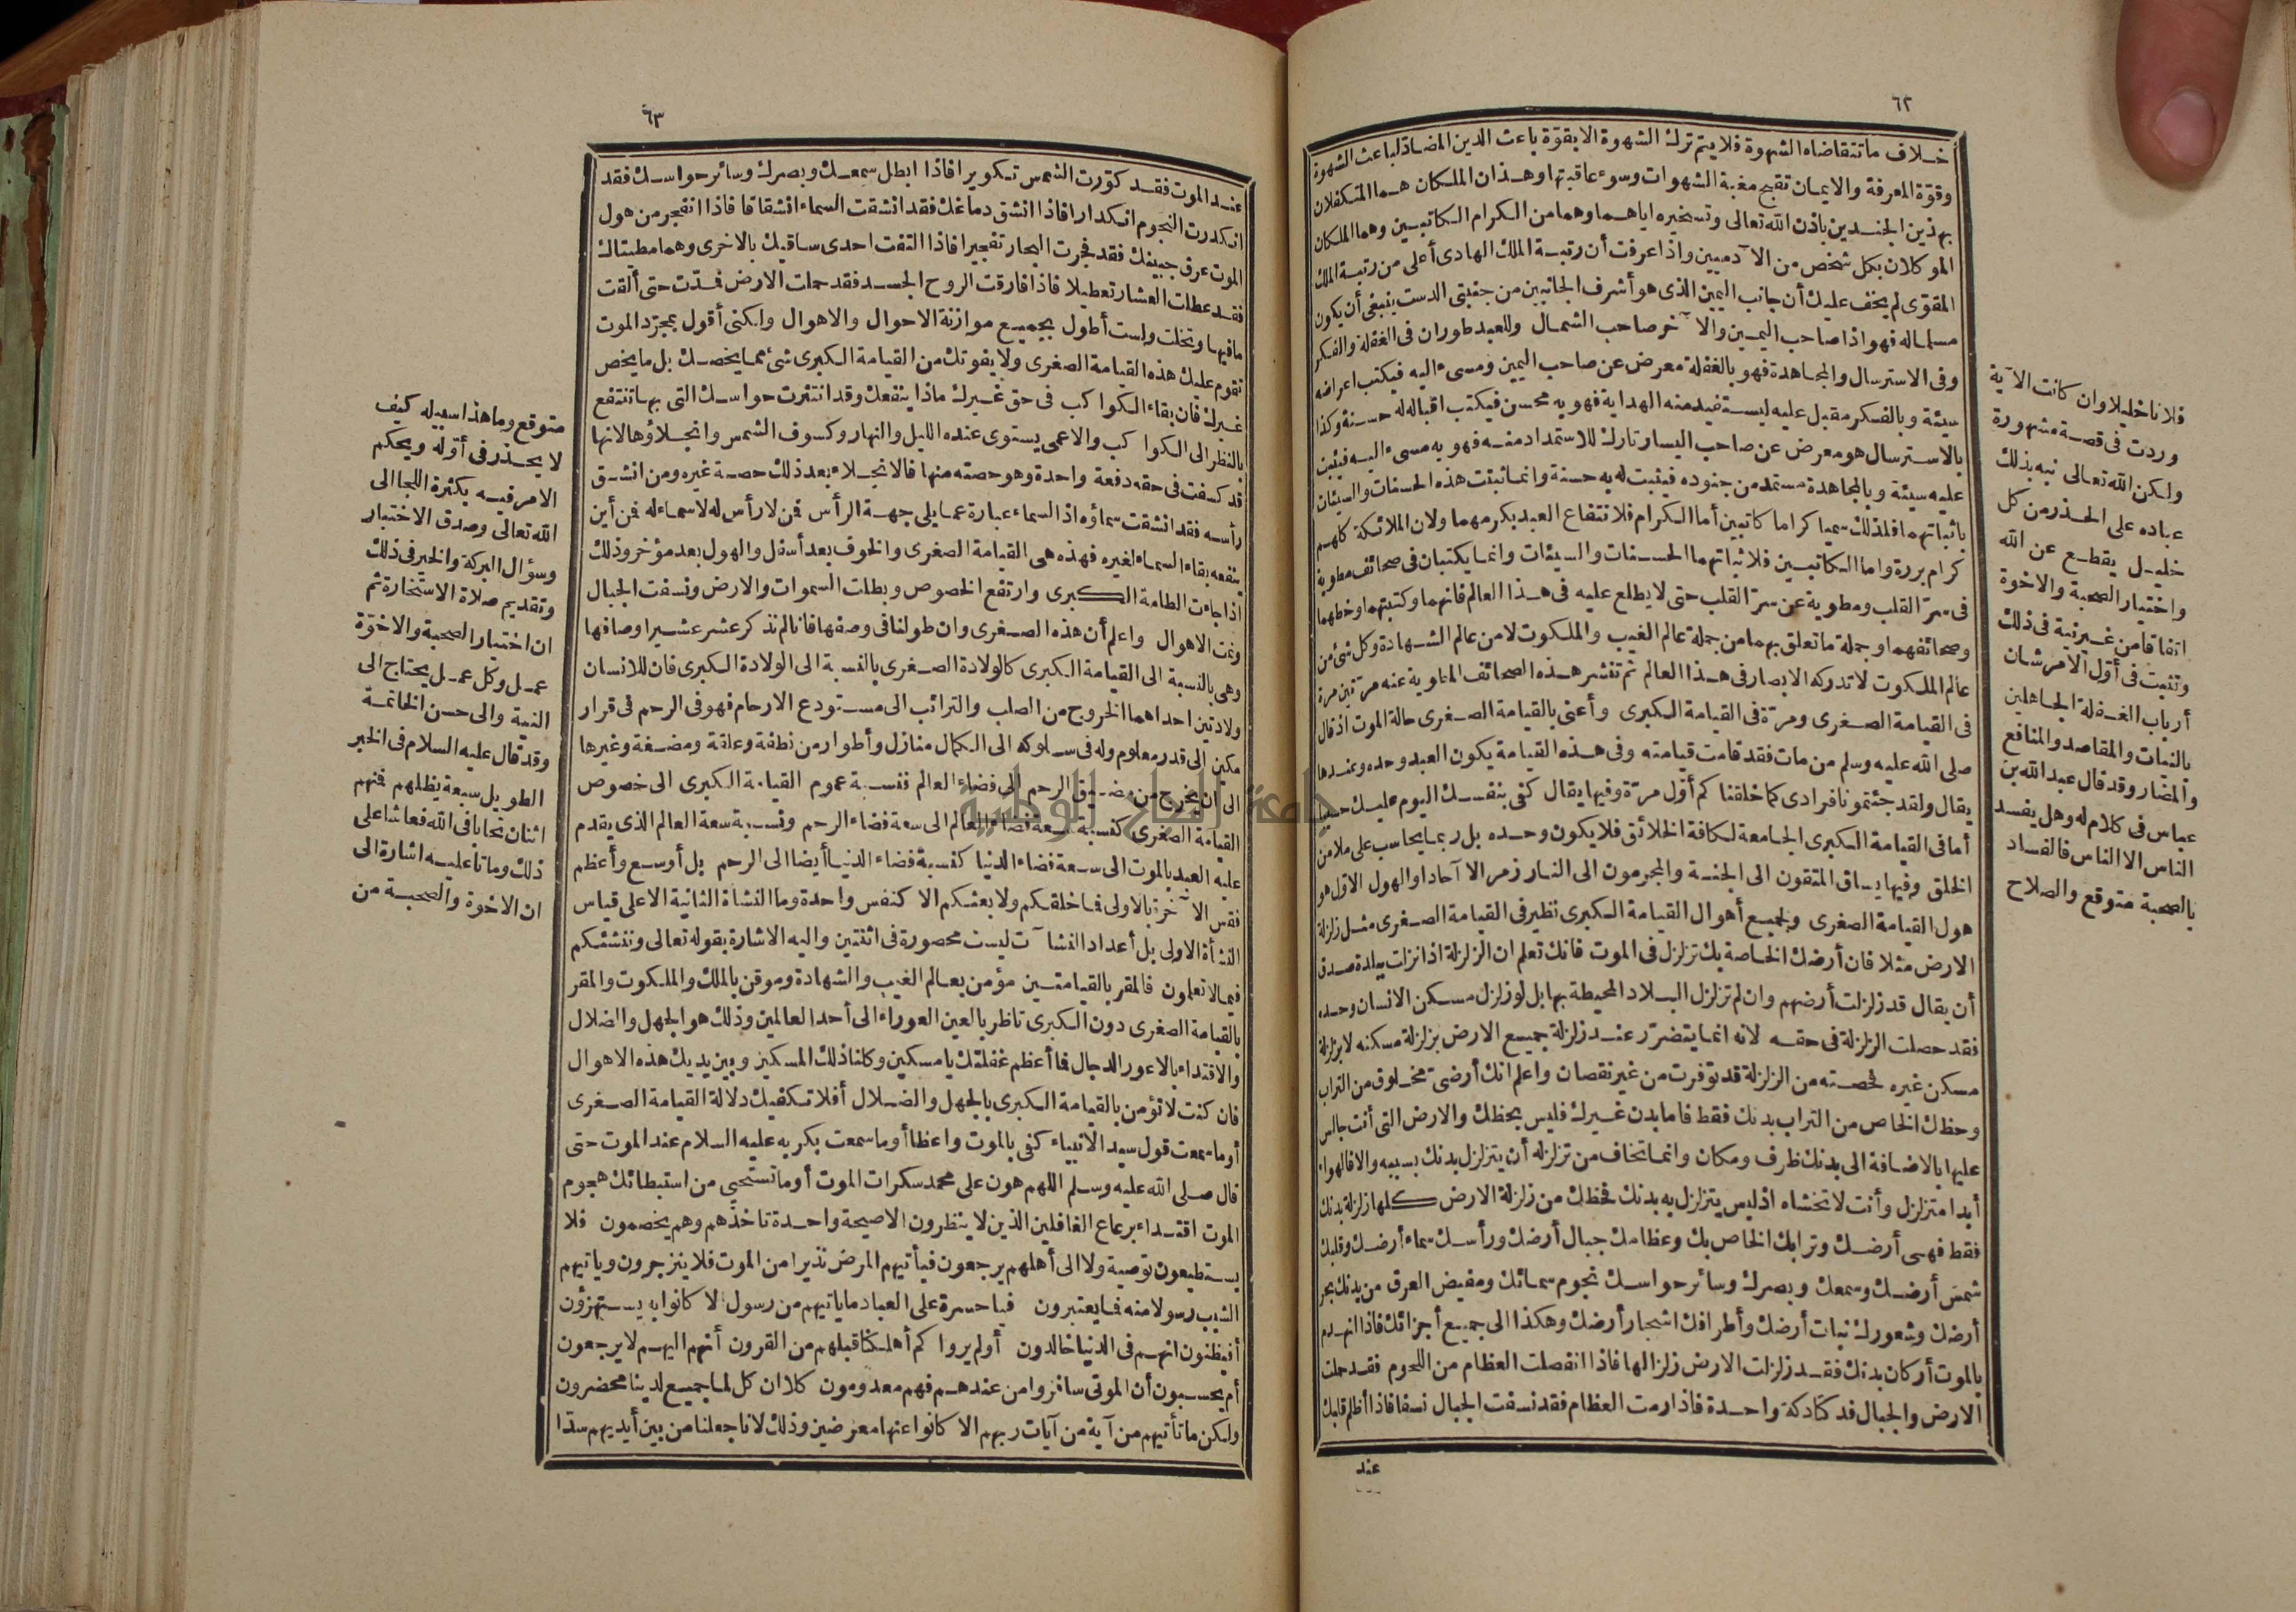 ٦٢
خلاف ما تتقاضاه الشهوة فلا يتم ترك الشهوة الا بقوّة باعث الدين المضادّ لباعث الشهوة
وقوّة المعرفة والايمان تقبح مغبة الشهوات وسوء عاقبتها وهذان الملكان هما المتكفلان
بهذين الجندين باذن الله تعالى وتسخيره اياهما وهما من الكرام الكاتبين وهما الملكان
الموكلان بكل شخص من الآدميين واذا عرفت أن رتبة الملك الهادى أعلى من رتبة الملك
المقوّى لم يخف عليك أن جانب اليمين الذى هو أشرف الجانبين من جنبتى الدست ينبغى أن يكون
مسلما له فهو اذا صاحب اليمين والآخر صاحب الشمال وللعبد طوران فى الغفلة والفكر
وفى الاسترسال والمجاهدة فهو بالغفلة معرض عن صاحب اليمين ومسىء اليه فيكتب اعراضه
سيئة وبالفكر مقبل عليه ليستفيد منه الهداية فهو به محسن فيكتب اقباله له حسنة وكذا
بالاسترسال هو معرض عن صاحب اليسار تارك للاستمداد منه فهو به مسىء اليه فيثبت
عليه سيئة وبالمجاهدة مستمد من جنوده فيثبت له به حسنة وانما ثبتت هذه الحسنات والسيئات
باثباتهما فلذلك سميا كراما كاتبين أما الكرام فلانتفاع العبد بكرمهما ولان الملائكة كلهم
كرام بررة واما الكاتبين فلاثباتهما الحسنات والسيئات وانما يكتبان فى صحائف مطوية
فى سرّ القلب ومطوية عن سرّ القلب حتى لا يطلع عليه فى هذا العالم فانهما وكتبتهما وخطهما
وصحائفهما وجملة ما تعلق بهما من جملة عالم الغيب والملكوت لا من عالم الشهادة وكل شئ من
عالم الملكوت لا تدركه الابصار فى هذا العالم ثم تنشر هذه الصحائف المطوية عنه مرّتين مرة
فى القيامة الصغرى ومرّة فى القيامة الكبرى وأعنى بالقيامة الصغرى حالة الموت اذ قال
صلى الله عليه وسلم من مات فقد قامت قيامته وفى هذه القيامة يكون العبد وحده وعندها
يقال ولقد جئتمونا فرادى كما خلقناكم أوّل مرّة وفيها يقال كفى بنفسك اليوم عليك حسيبا
أما فى القيامة الكبرى الجامعة لكافة الخلائق فلا يكون وحده بل ربما يحاسب على ملا من
الخلق وفيها يساق المتقون الى الجنة والمجرمون الى النار زمرا لا آحادا والهول الاوّل هو
هول القيامة الصغرى ولجميع أهوال القيامة الكبرى نظير فى القيامة الصغرى مثل زلزلة
الارض مثلا فان أرضك الخاصة بك تزلزل فى الموت فانك تعلم ان الزلزلة اذا نزلت ببلدة صدق
أن يقال قد زلزلت أرضهم وان لم تزلزل البلاد المحيطة بها بل لو زلزل مسكن الانسان وحده
فقد حصلت الزلزلة فى حقه لانه انما يتضرّر عند زلزلة جميع الارض بزلزلة مسكنه لا بزلزلة
مسكن غيره فحصته من الزلزلة قد توفرت من غير نقصان واعلم انك أرضىّ مخلوق من التراب
وحظك الخاص من التراب بدنك فقط فاما بدن غيرك فليس بحظك والارض التى أنت جالس
عليها بالاضافة الى بدنك ظرف ومكان وانما تخاف من تزلزله أن يتزلزل بدنك بسببه والا فالهواء
أبدا متزلزل وأنت لا تخشاه اذ ليس يتزلزل به بدنك فحظك من زلزلة الارض كلها زلزلة بدنك
فقط فهى أرضك وترابك الخاص بك وعظامك جبال أرضك ورأسك سماء أرضك وقلبك
شمس أرضك وسمعك وبصرك وسائر حواسك نجوم سمائك ومفيض العرق من بدنك بحر
أرضك وشعورك نبات أرضك وأطرافك اشجار أرضك وهكذا الى جميع أجزائك فاذا انهدم
بالموت أركان بدنك فقد زلزلت الارض زلزالها فاذا انفصلت العظام من اللحوم فقد حملت
الارض والجبال فدكتا دكة واحدة فاذا رمت العظام فقد نسفت الجبال نسفا فاذا أظلم قلبك
عند
فلانا خليلا وان كانت الآية
وردت فى قصة مشهورة
ولكن الله تعالى نبه بذلك
عباده على الحذر من كل
خليل يقطع عن الله
واختيار الصحبة والاخوة
اتفاقا من غير نية فى ذلك
وتثبت فى أوّل الامر شان
أرباب الغفلة الجاهلين
بالنيات والمقاصد والمنافع
والمضار وقد قال عبد الله بن
عباس فى كلام له وهل يفسد
الناس الا الناس فالفساد
بالصحبة متوقع والصلاح
٦٣
عند الموت فقد كوّرت الشمس تكويرا فاذا ابطل سمعك وبصرك وسائر حواسك فقد
انكدرت النجوم انكدارا فاذا انشق دماغك فقد انشقت السماء انشقاقا فاذا انفجر من هول
الموت عرق جبينك فقد فجرت البحار تفجيرا فاذا التفت احدى ساقيك بالاخرى وهما مطيتاك
فقد عطلت العشار تعطيلا فاذا فارقت الروح الجسد فقد حملت الارض فمدّت حتى ألقت
ما فيها وتخلت ولست أطول بجميع موازنة الاحوال والاهوال ولكنى أقول بمجرّد الموت
تقوم عليك هذه القيامة الصغرى ولا يفوتك من القيامة الكبرى شئ مما يخصك بل ما يخص
غيرك فان بقاء الكواكب فى حق غيرك ماذا ينفعك وقد انتثرت حواسك التى بها تنتفع
بالنظر الى الكواكب والاعمى يستوى عنده الليل والنهار وكسوف الشمس وانجلاؤها لانها
قد كسفت فى حقه دفعة واحدة وهو حصته منها فالانجلاء بعد ذلك حصة غيره ومن انشق
رأسه فقد انشقت سماؤه اذ السماء عبارة عما يلى جهة الرأس فمن لا رأس له لا سماء له فمن أين
ينفعه بقاء السماء لغيره فهذه هى القيامة الصغرى والخوف بعد أسفل والهول بعد مؤخر وذلك
اذا جاءت الطامة الكبرى وارتفع الخصوص وبطلت السموات والارض ونسفت الجبال
وتمت الاهوال واعلم أن هذه الصغرى وان طولنا فى وصفها فانا لم نذكر عشر عشير اوصافها
وهى بالنسبة الى القيامة الكبرى كالولادة الصغرى بالنسبة الى الولادة الكبرى فان للانسان
ولادتين احداهما الخروج من الصلب والترائب الى مستودع الارحام فهو فى الرحم فى قرار
مكين الى قدر معلوم وله فى سلوكه الى الكمال منازل وأطوار من نطفة وعلقة ومضغة وغيرها
الى أن يخرج من مضيق الرحم الى فضاء العالم فنسبة عموم القيامة الكبرى الى خصوص
القيامة الصغرى كنسبة سعة فضاء العالم الى سعة فضاء الرحم ونسبة سعة العالم الذى يقدم
عليه العبد بالموت الى سعة فضاء الدنيا كنسبة فضاء الدنيا أيضا الى الرحم بل أوسع وأعظم
فقس الآخرة بالاولى فما خلقكم ولا بعثكم الا كنفس واحدة وما النشاة الثانية الا على قياس
النشأة الاولى بل أعداد النشآت ليست محصورة فى اثنتين واليه الاشارة بقوله تعالى وننشئكم
فيما لا تعلمون فالمقر بالقيامتين مؤمن بعالم الغيب والشهادة وموقن بالملك والملكوت والمقر
بالقيامة الصغرى دون الكبرى ناظر بالعين العوراء الى أحد العالمين وذلك هو الجهل والضلال
والاقتداء بالاعور الدجال فما أعظم غفلتك يا مسكين وكلنا ذلك المسكين وبين يديك هذه الاهوال
فان كنت لا تؤمن بالقيامة الكبرى بالجهل والضلال أفلا تكفيك دلالة القيامة الصغرى
أوما سمعت قول سيد الانبياء كفى بالموت واعظا أوما سمعت بكربه عليه السلام عند الموت حتى
قال صلى الله عليه وسلم اللهم هون على محمد سكرات الموت أوما تستحيى من استبطائك هجوم
الموت اقتداء برعاع الغافلين الذين لا ينظرون الا صيحة واحدة تاخذهم وهم يخصمون فلا
يستطيعون توصية ولا الى أهلهم يرجعون فيأتيهم المرض نذيرا من الموت فلا ينزجرون وياتيهم
الشيب رسولا منه فما يعتبرون فيا حسرة على العباد ما ياتيهم من رسول الا كانوا به يستهزؤن
أفيظنون انهم فى الدنيا خالدون أولم يروا كم أهلكنا قبلهم من القرون أنهم اليهم لا يرجعون
أم يحسبون أن الموتى سافروا من عندهم فهم معدومون كلا ان كل لما جميع لدينا محضرون
ولكن ما تأتيهم من آية من آيات ربهم الا كانوا عنها معرضين وذلك لانا جعلنا من بين أيديهم سدّا
متوقع وما هذا سبيله كيف
لا يحذر فى أوّله ويحكم
الامر فيه بكثرة اللجا الى
الله تعالى وصدق الاختيار
وسؤال البركة والخير فى ذلك
وتقديم صلاة الاستخارة ثم
ان اختيار الصحبة والاخوّة
عمل وكل عمل يحتاج الى
النية والى حسن الخاتمة
وقد قال عليه السلام فى الخبر
الطويل سبعة يظلهم فمنهم
اثنان تحابا فى الله فعاشا على
ذلك وماتا عليه اشارة الى
ان الاخوة والصحبة من
جامعة النجاح الوطنية